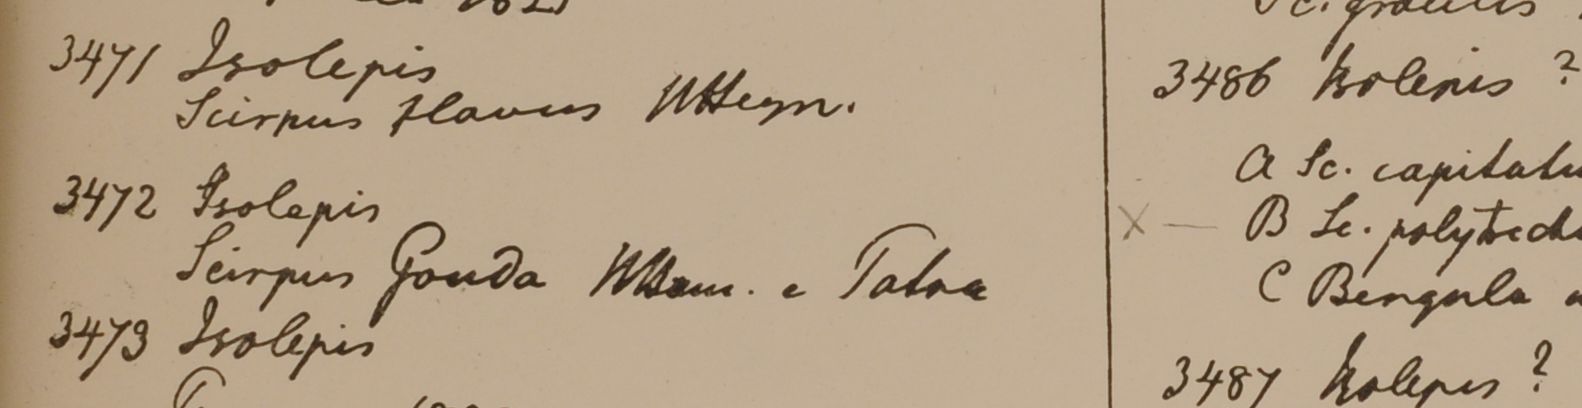 3471 Isolepis
Scirpus flavus
3472 Isolepis
Scirpus Gouda
3473 Isolepis
3486 Isolepis ?
A Sc. capitatu
B Sc. polytrich
C Bengala
3487 Isolepis ?